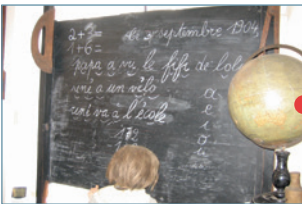 2+3= le septembre 1904
1+6=
papa a vu le fifi de lola
rené a un vélo a
rené va à l'école e
172 i
o
u